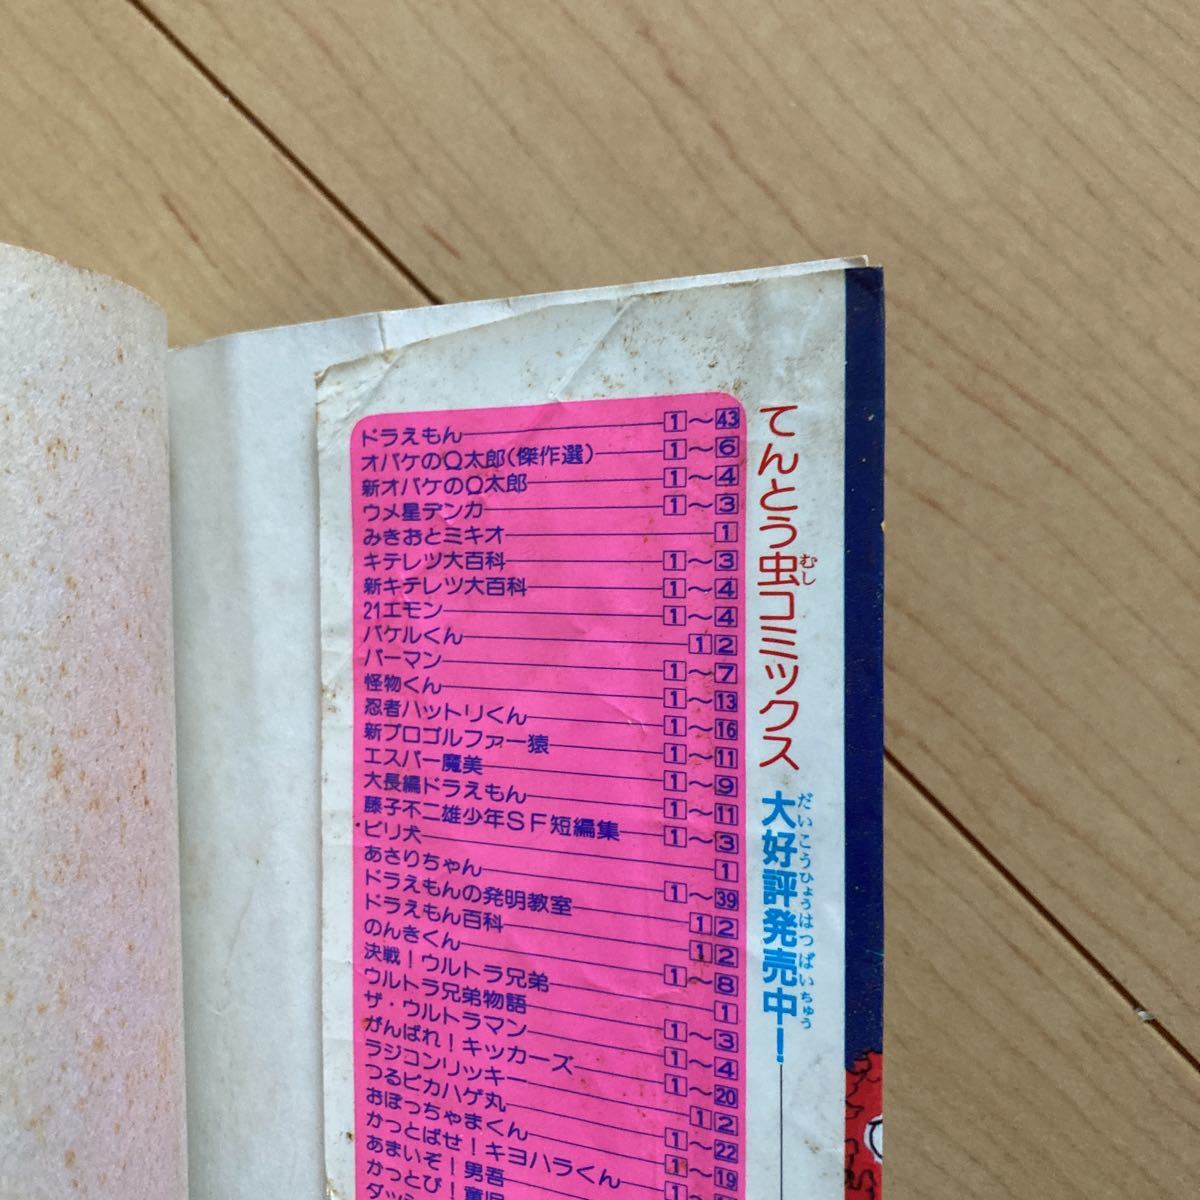 てんとう虫コミックス 大好評発売中！
むし
だいこうひょうはつばいちゅう
ドラえもん 1～43
オバケのQ太郎(傑作選) 1～6
新オバケのQ太郎 1～4
ウメ星デンカ 1～3
みきおとミキオ 1
キテレツ大百科 1～3
新キテレツ大百科 1～4
21エモン 1～4
バケルくん 1 2
パーマン 1～7
怪物くん 1～13
忍者ハットリくん 1～16
新プロゴルファー猿 1～11
エスパー魔美 1～9
大長編ドラえもん 1～11
藤子不二雄少年SF短編集 1～3
ビリ犬 1
あさりちゃん 1～39
ドラえもんの発明教室 1 2
ドラえもん百科 1 2
のんきくん 1～8
決戦！ウルトラ兄弟 1
ウルトラ兄弟物語 1～3
ザ・ウルトラマン 1～4
がんばれ！キッカーズ 1～20
ラジコンリッキー 1 2
つるピカハゲ丸 1～22
おぼっちゃまくん 1～19
かっとばせ！キヨハラくん
あまいぞ！男吾
かっとび！